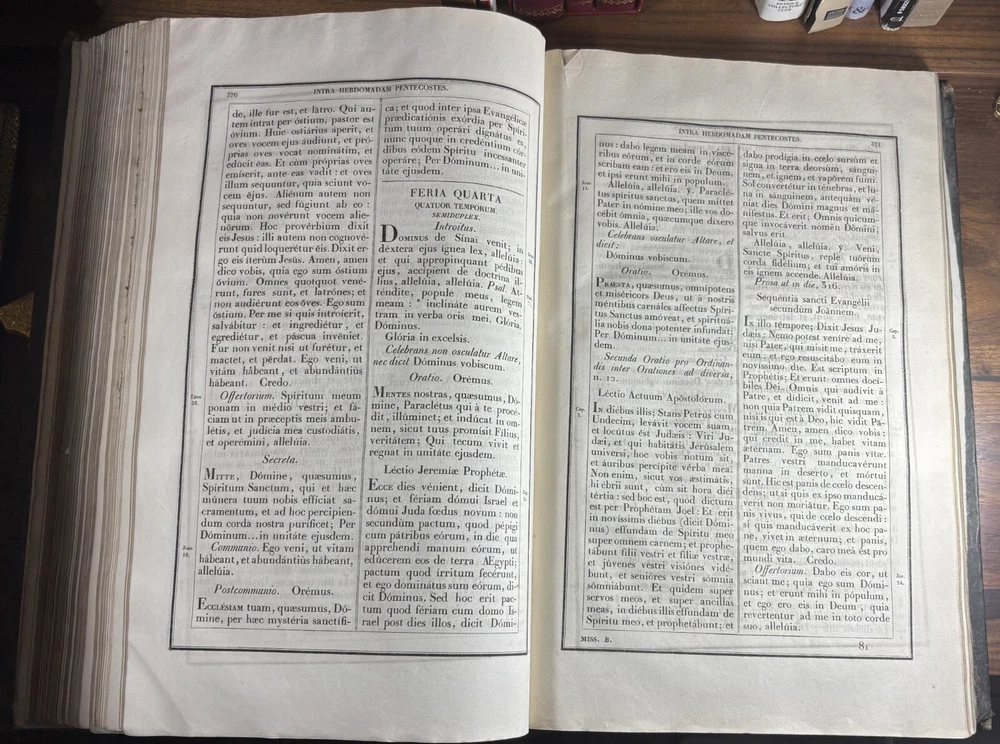 320
INTRA HEBDOMADAM PENTECOSTES.
de, ille fur est, et latro. Qui au-
tem intrat per óstium, pastor est
óvium. Huic ostiárius áperit, et
oves vocem ejus áudiunt, et pró-
prias oves vocat nominátim, et
edúcit eas. Et cùm próprias oves
emíserit, ante eas vadit: et oves
illum sequuntur, quia sciunt vo-
cem éjus. Aliénum autem non
sequuntur, sed fúgiunt ab eo:
quia non novérunt vocem alie-
nórum. Hoc provérbium dixit
eis Jesus: illi autem non cognové-
runt quid loquerétur eis. Dixit er-
go eis iterùm Jesùs. Amen, amen
dico vobis, quia ego sum óstium
óvium. Omnes quotquot vené-
runt, fures sunt, et latrónes; et
non audiérunt eos óves. Ego sum
óstium. Per me si quis introíerit,
salvábitur: et ingrediétur, et
egrediétur, et páscua invéniet.
Fur non venit nisi ut furétur, et
mactet, et pérdat. Ego veni, ut
vitám hábeant, et abundántiùs
hábeant. Credo.
Ezec.
36.
Offertorium. Spíritum meum
ponam in médio vestri; et fá-
ciam ut in præceptis meis ambu-
létis, et judícia mea custodiátis,
et operémini, allelúia.
Secreta.
MITTE, Dómine, quæsumus,
Spíritum Sanctum, qui et hæc
múnera tuum nobis efficiat sa-
cramentum, et ad hoc percipien-
dum corda nostra purificet; Per
Dóminum... in unitáte ejusdem.
Joan.
10.
Communio. Ego veni, ut vitam
hábeant, et abundántiùs hábeant,
allelúia.
Postcommunio. Orémus.
ECCLÉSIAM tuam, quæsumus, Dó-
mine, per hæc mystéria sanctifi-
ca; et quod inter ipsa Evangélicæ
prædicatiónis exórdia per Spíri-
tum tuum operári dignátus es,
nunc quoque in credéntium cór-
dibus eódem Spíritu incessanter
operáre; Per Dóminum... in uni-
táte ejusdem.
FERIA QUARTA
QUATUOR TEMPORUM.
SEMIDUPLEX.
Introitus.
DOMINUS de Sínai venit; in
déxtera ejus ígnea lex, allelúia:
et qui appropinquant pédibus
ejus, accípient de doctrína il-
líus, allelúia, allelúia. Psal. At-
téndite, pópule meus, legem
meam: * inclináte aurem ves-
tram in verba oris mei. Glória.
Dóminus.
Glória in excelsis.
Celebrans non osculatur Altare,
nec dicit Dóminus vobiscum.
Oratio. Orémus.
MENTES nostras, quæsumus, Dó-
mine, Paraclétus qui à te procé-
dit, illúminet; et indúcat in om-
nem, sicut tuus promísit Fílius,
veritátem; Qui tecum vivit et
regnat in unitáte ejusdem.
Léctio Jeremíæ Prophétæ.
ECCE dies vénient, dicit Dómi-
nus; et fériam dómui Israel et
dómui Juda fœdus novum: non
secundùm pactum, quod pépigi
cum pátribus eórum, in die qua
apprehendi manum eórum, ut
edúcerem eos de terra AEgypti;
pactum quod írritum fecérunt,
et ego dominátus sum eórum, di-
cit Dóminus. Sed hoc erit pac-
tum quod fériam cum domo Is-
rael post dies illos, dicit Dómi-
INTRA HEBDOMADAM PENTECOSTES.
321
nus: dabo legem meam in viscé-
ribus eórum, et in corde eórum
scribam eam: et ero eis in Deum,
et ipsi erunt mihi in pópulum.
Joan.
14.
Allelúia, allelúia. ℣. Paraclé-
tus spíritus sanctus, quem mittet
Pater in nómine meo; ille vos do-
cébit ómnia, quæcumque díxero
vobis. Allelúia.
Celebrans osculatur Altare, et
dicit:
Dóminus vobiscum.
Oratio. Orémus.
PRÆSTA, quæsumus, omnípotens
et miséricors Deus, ut à nostris
méntibus carnáles affectus Spíri-
tus Sanctus amóveat, et spirituá-
lia nobis dona poténter infundat;
Per Dóminum... in unitáte ejus-
dem.
Secunda Oratio pro Ordinan-
dis inter Orationes ad diversa,
n. 12.
Léctio Actuum Apostolórum.
Cap.
2.
IN diébus illis; Stans Petrus cum
Undecim, levávit vocem suam,
et locútus est Judæis: Viri Ju-
dæi, et qui habitátis Jerúsalem
universi, hoc vobis notum sit,
et áuribus percípite verba mea.
Non enim, sicut vos æstimátis,
hi ébrii sunt, cùm sit hora diéi
tértia: sed hoc est, quod dictum
est per Prophétam Joel: Et erit
in novíssimis diébus (dicit Dómi-
nus) effundam de Spíritu meo
super omnem carnem; et prophe-
tábunt fílii vestri et fíliæ vestræ,
et júvenes vestri visiónes vidé-
bunt, et senióres vestri sómnia
somniábunt. Et quidem super
servos meos, et super ancillas
meas, in diébus illis effundam de
Spíritu meo, et prophetábunt; et
dabo prodígia in cœlo sursùm et
signa in terra deorsùm, sángui-
nem, et ignem, et vapórem fumi.
Sol convertétur in ténebras, et lu-
na in sánguinem, ántequàm vé-
niat dies Dómini magnus et ma-
nifestus. Et erit; Omnis quicum-
que invocáverit nomen Dómini,
salvus erit.
Allelúia, allelúia. ℣. Veni,
Sancte Spíritus, reple tuórum
corda fidélium; et tui amóris in
eis ignem accende. Allelúia.
Prosa ut in die, 316.
Sequéntia sancti Evangélii
secundum Joánnem.
Cap.
6.
IN illo témpore; Dixit Jesus Ju-
dæis: Nemo potest veníre ad me,
nisi Pater, qui misit me, tráxerit
eum; et ego resuscitábo eum in
novíssimo die. Est scriptum in
Prophétis; Et erunt omnes docí-
biles Dei. Omnis qui audívit à
Patre, et dídicit, venit ad me:
non quia Patrem vidit quisquam,
nisi is qui est à Deo, hic vidit Pa-
trem. Amen, amen dico vobis:
qui credit in me, habet vitam
ætérnam. Ego sum panis vitæ.
Patres vestri manducavérunt
manna in deserto, et mórtui
sunt. Hic est panis de cœlo descen-
dens; ut si quis ex ipso manducá-
verit non moriátur. Ego sum pa-
nis vivus, qui de cœlo descendi:
si quis manducáverit ex hoc pa-
ne, vivet in ætérnum; et panis,
quem ego dabo, caro mea est pro
mundi vita. Credo.
Jer.
24.
Offertorium. Dabo eis cor, ut
sciant me; quia ego sum Dómi-
nus; et erunt mihi in pópulum,
et ego ero eis in Deum, quia
revertentur ad me in toto corde
suo, allelúia.
MISS. B.
81